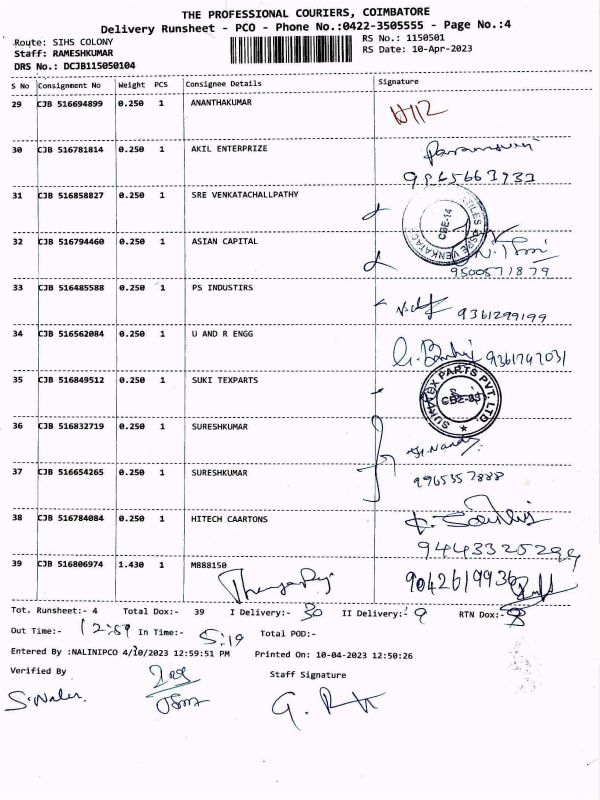 THE PROFESSIONAL COURIERS, COIMBATORE
Delivery Runsheet - PCO - Phone No.:0422-3505555 - Page No.:4
Route: SIHS COLONY
RS No.: 1150501
Staff: RAMESHKUMAR
RS Date: 10-Apr-2023
DRS No.: DCJB115050104
S No Consignment No Weight PCS Consignee Details Signature
29 CJB 516694899 0.250 1 ANANTHAKUMAR
30 CJB 516781814 0.250 1 AKIL ENTERPRIZE
31 CJB 516858827 0.250 1 SRE VENKATACHALLPATHY
CBE-14
32 CJB 516794460 0.250 1 ASIAN CAPITAL
9500571879
33 CJB 516485588 0.250 1 PS INDUSTIRS
9361299199
34 CJB 516562084 0.250 1 U AND R ENGG
35 CJB 516849512 0.250 1 SUKI TEXPARTS
36 CJB 516832719 0.250 1 SURESHKUMAR
37 CJB 516654265 0.250 1 SURESHKUMAR
9965357888
38 CJB 516784084 0.250 1 HITECH CAARTONS
39 CJB 516806974 1.430 1 M888150
9042619936
Tot. Runsheet:- 4 Total Dox:- 39 I Delivery:- 30 II Delivery:- 9 RTN Dox:-
Out Time:- 12:59 In Time:- 5:19 Total POD:-
Entered By :NALINIPCO 4/10/2023 12:59:51 PM Printed On: 10-04-2023 12:50:26
Verified By
Staff Signature